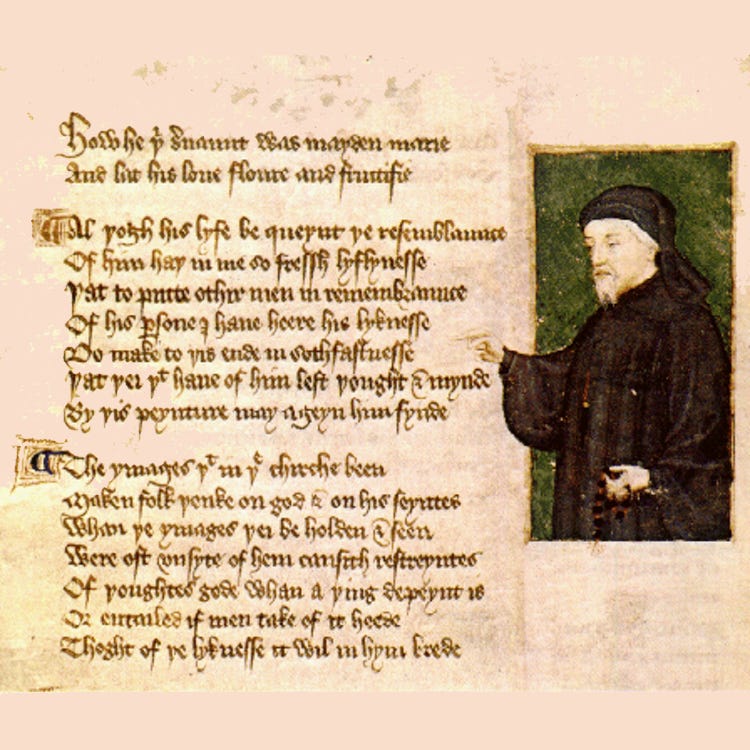 How he þͥ s̉uaunt was mayden marie
And lat his loue floure and fructifie
Al þogh his lyfe be queynt þe resemblaunce
Of him haþ in me so fressh lyflynesse
Þat to putte othir men in remembraunce
Of his ꝑsone I haue heere his lyknesse
Do make to þis ende in sothfastnesse
Þat þei þᵗ haue of him left þought & mynde
By þis peynture may ageyn him fynde
The ymages þᵗ in þͤ chirche been
Maken folk þenke on god & on his seyntes
Whan þe ymages þei be holden & seen
Were oft vnsyte of hem causith restreyntes
Of þoughtes gode whan a þing depeynt is
Or entailed if men take of it heede
Thoght of þe lyknesse it wil in hym brede